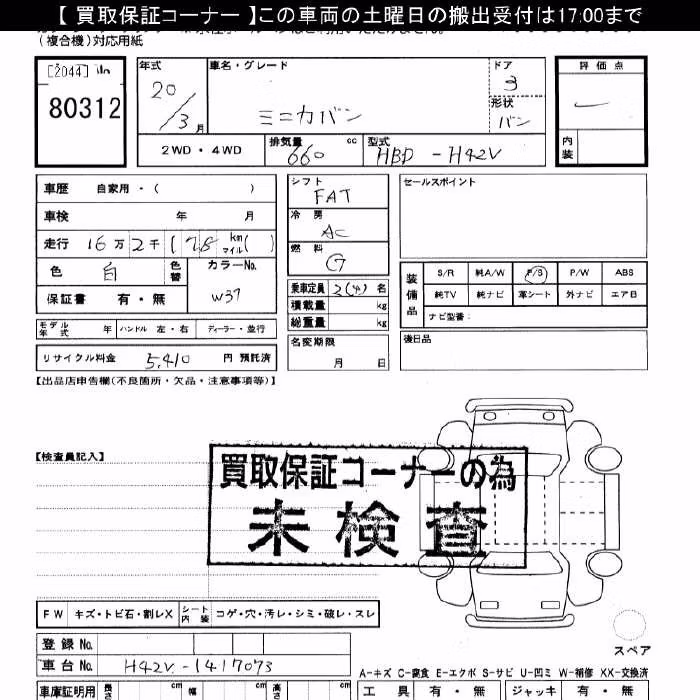 【 買取保証コーナー 】この車両の土曜日の搬出受付は17:00まで
(複合機)対応用紙
[2044]
80312
年式
20/3月
車名・グレード
ミニカバン
ドア
3
形状
バン
評価点
2WD・4WD
排気量
660 cc
型式
HBD - H42V
内装
車歴 自家用・( )
車検 年 月
走行 16万2千(78 km マイル( )
色 白 色替
カラーNo.
W37
保証書 有・無
シフト
FAT
冷房
AC
燃料
G
乗車定員 2(4)名
積載量 kg
総重量 kg
セールスポイント
装備品
S/R 純A/W P/S P/W ABS
純TV 純ナビ 革シート 外ナビ エアB
ナビ型番:
モデル年式 年 ハンドル 左・右 ディーラー・並行
リサイクル料金 5,410 円 預託済
名変期限
月 日
後日品
【出品店申告欄(不良箇所・欠品・注意事項等)】
【検査員記入】
買取保証コーナーの為
未検査
FW キズ・トビ石・割レX シート内装 コゲ・穴・汚レ・シミ・破レ・スレ
登録No.
車台No. H42V-1417073
スペア
A-キズ C-腐食 E-エクボ S-サビ U-凹ミ W-補修 XX-交換済
車庫証明用 長さ cm 幅 cm 高さ cm
工具 有・無 ジャッキ 有・無